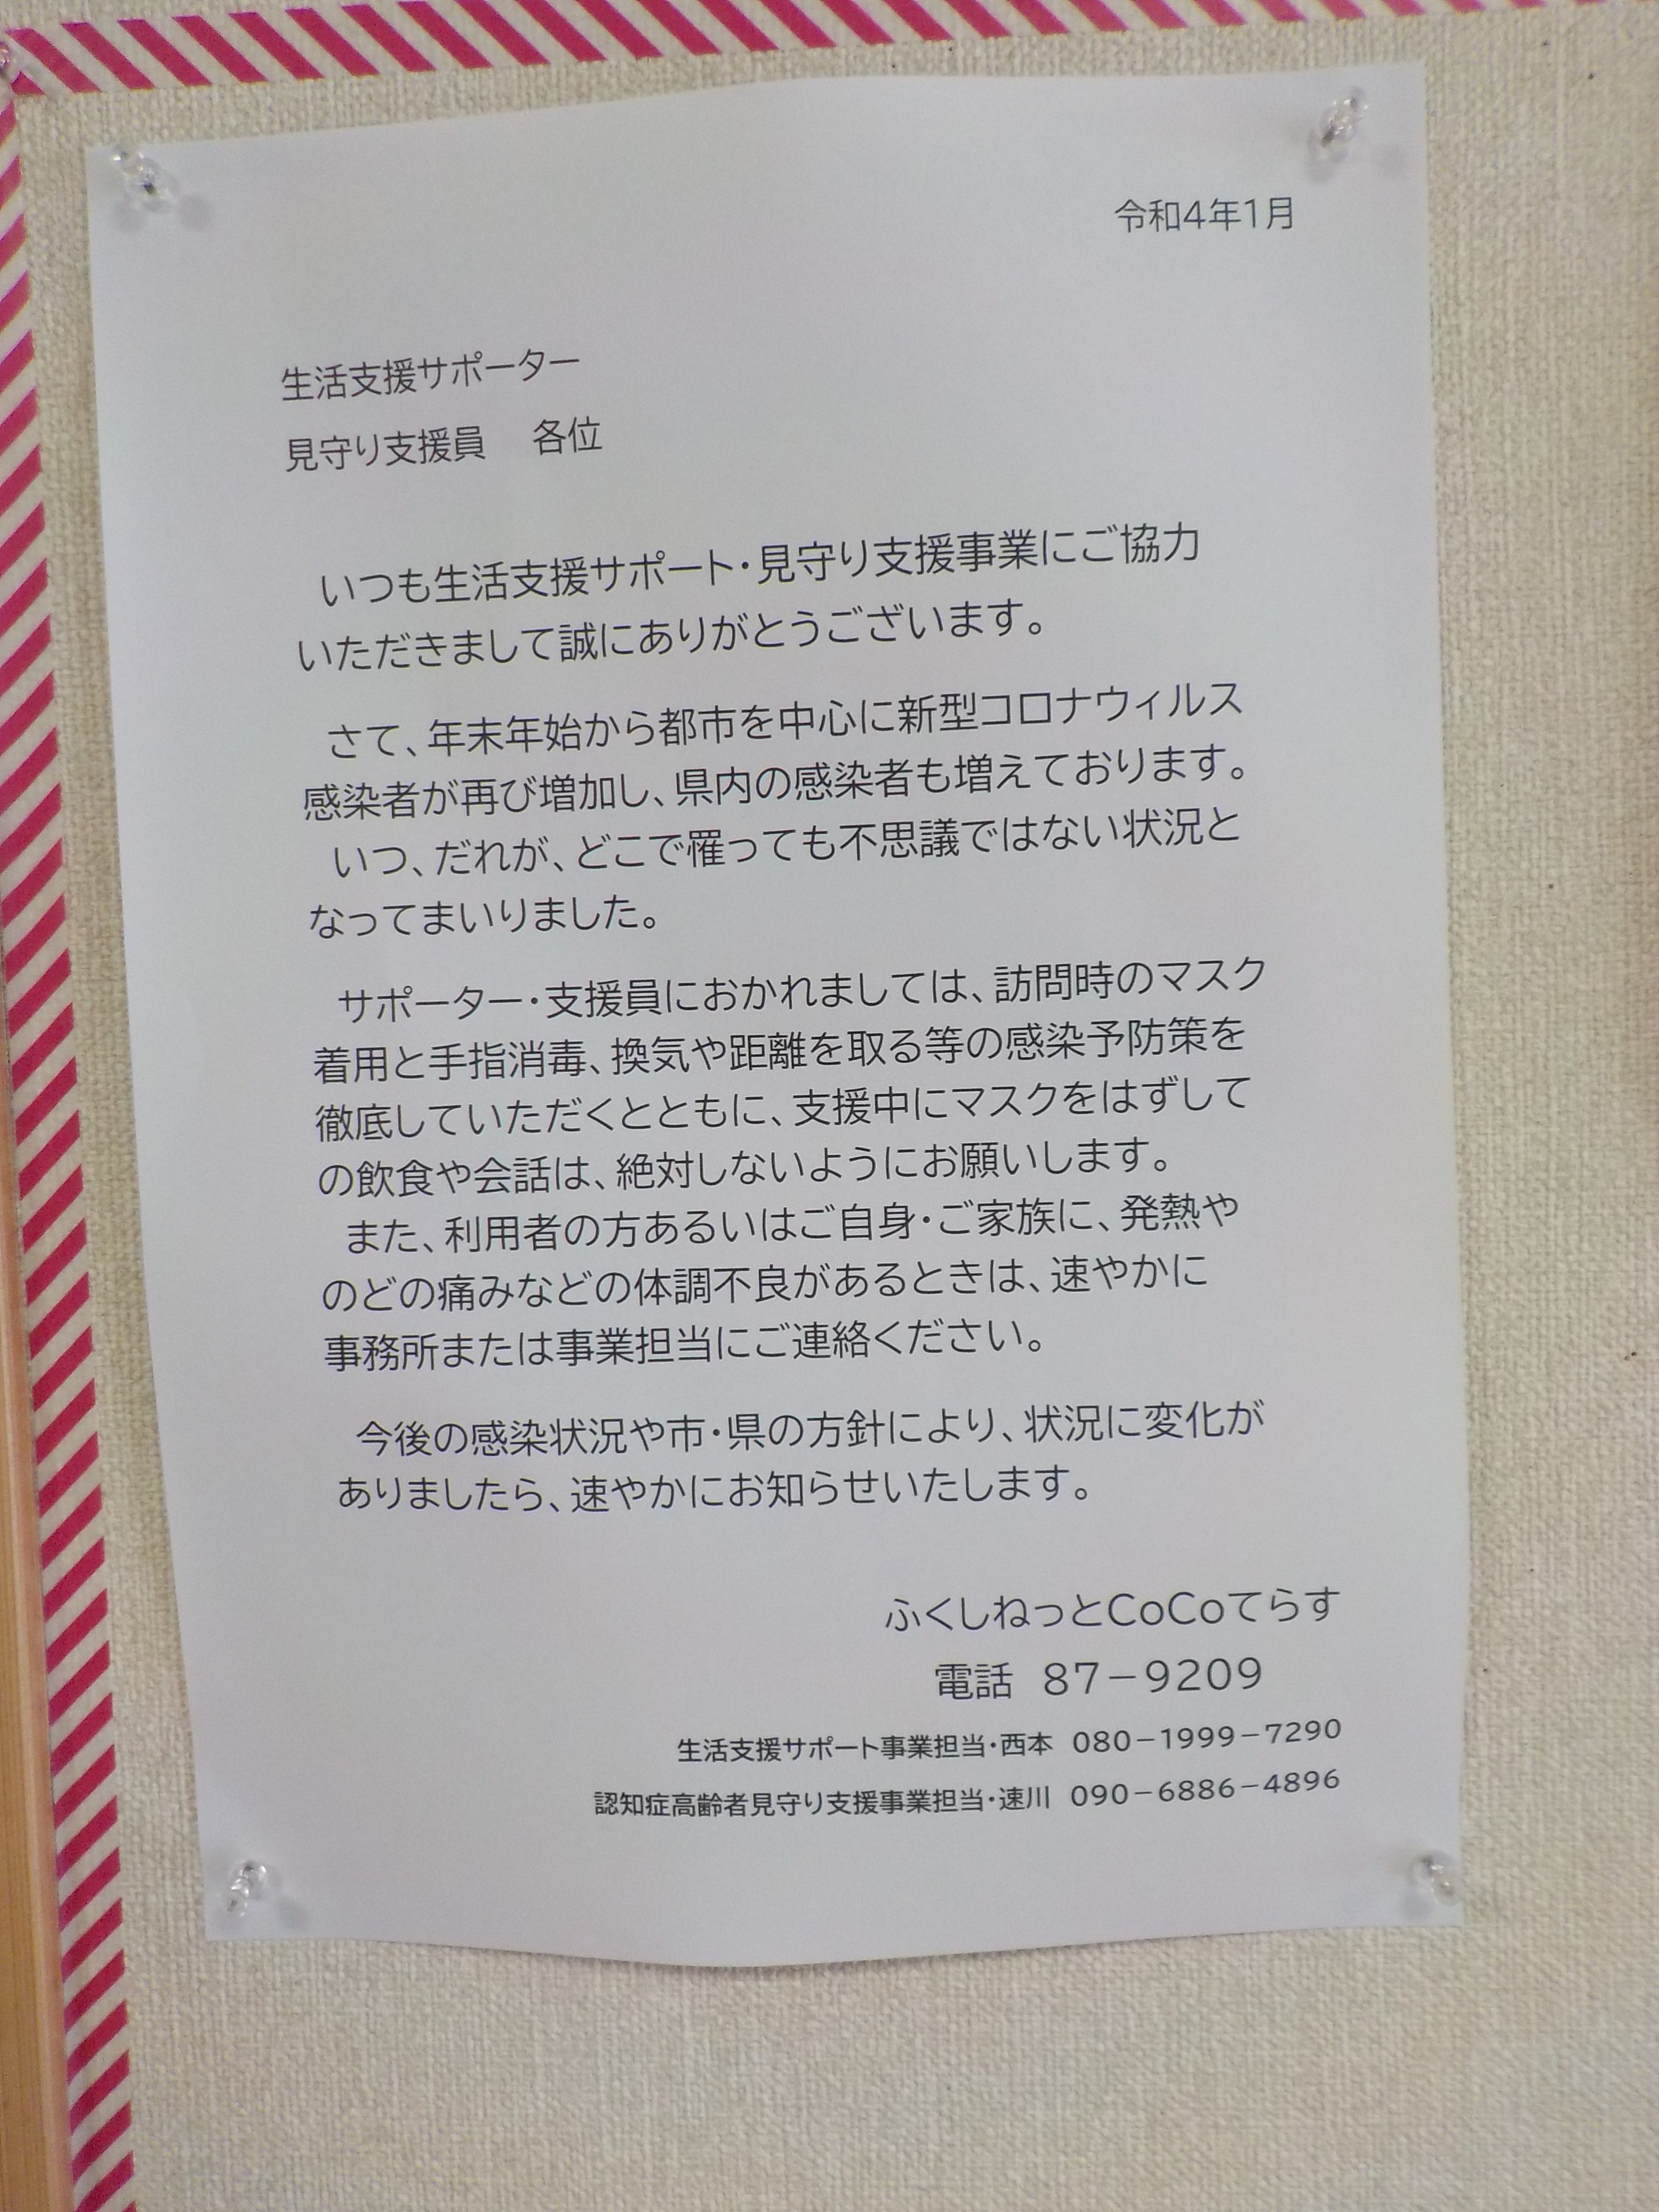 令和4年1月
生活支援サポーター
見守り支援員　各位
いつも生活支援サポート・見守り支援事業にご協力
いただきまして誠にありがとうございます。
さて、年末年始から都市を中心に新型コロナウィルス
感染者が再び増加し、県内の感染者も増えております。
いつ、だれが、どこで罹っても不思議ではない状況と
なってまいりました。
サポーター・支援員におかれましては、訪問時のマスク
着用と手指消毒、換気や距離を取る等の感染予防策を
徹底していただくとともに、支援中にマスクをはずして
の飲食や会話は、絶対しないようにお願いします。
また、利用者の方あるいはご自身・ご家族に、発熱や
のどの痛みなどの体調不良があるときは、速やかに
事務所または事業担当にご連絡ください。
今後の感染状況や市・県の方針により、状況に変化が
ありましたら、速やかにお知らせいたします。
ふくしねっとCoCoてらす
電話　87－9209
生活支援サポート事業担当・西本　080－1999－7290
認知症高齢者見守り支援事業担当・速川　090－6886－4896